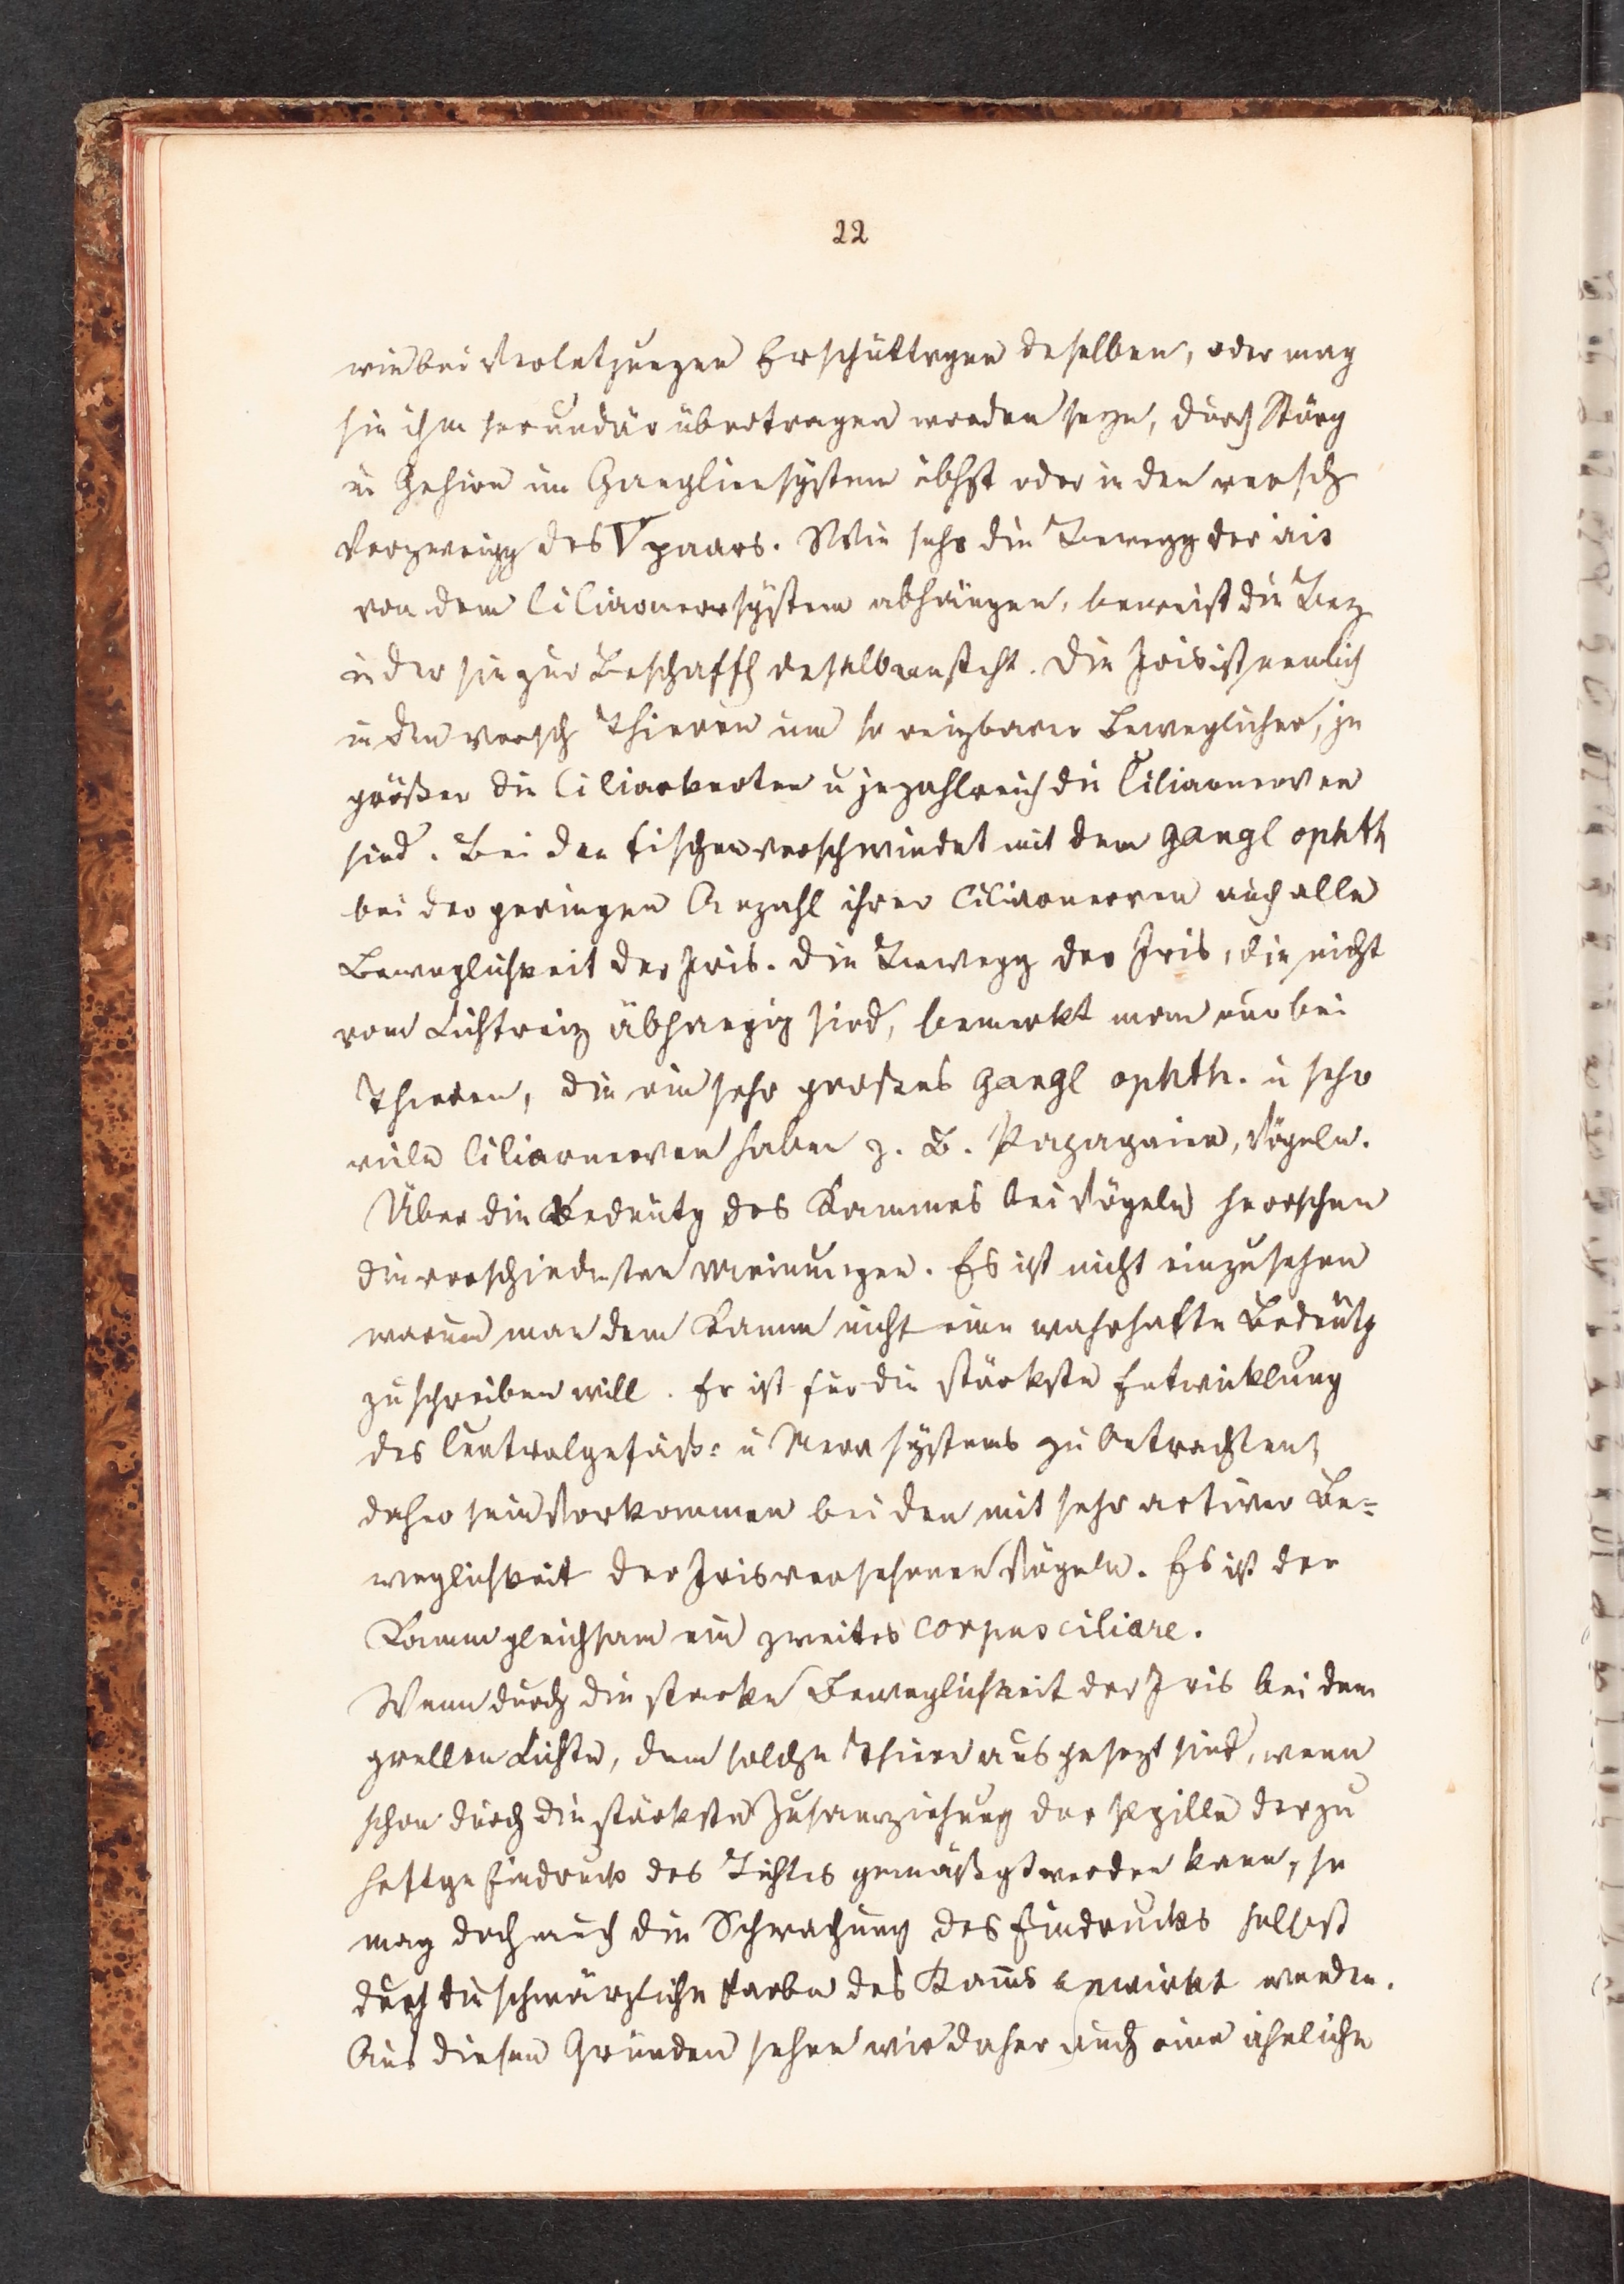 22
wie bei Verletzungen Erschüttrgen deselben, oder mag
sie ihm secundär übertragen worden seyn, durch Störg
in Gehirn im Gangliensystem selbst oder in den versch
Verzweigg des V paars. Wie sehr die Bewegg der iris
von dem Ciliarnervsystem abhängen, beweist die Bez
in der sie zur Beschaffh deselben steht. Die Iris ist nemlich
in den versch Thieren um so reizbarer beweglicher, je
größer die Ciliarknoten u je zahlreich die Ciliarnerven
sind. Bei den Fischen verschwindet mit dem gangl ophth
bei der geringen Anzahl ihrer Ciliarnerven auch alle
Beweglichkeit der Iris. Die Bewegg der Iris, die nicht
vom Lichtreiz abhaengig sind, bemerkt man nur bei
Thieren, die ein sehr großes gangl ophth. u sehr
viele Ciliarnerven haben z. B. Papagaien, Vögeln.
Über die Bedeutg des Kammes bei Vögeln herrschen
die verschiedensten Meinungen. Es ist nicht einzusehen
warum man dem Kamm nicht eine wahrhafte Bedeutg
zuschreiben will. Er ist für die stärkste Entwicklung
des Centralgefäß= u Nervsystems zu betrachten,
daher sein Vorkommen bei den mit sehr activer Be=
weglichkeit der Iris versehenen Vögeln. Es ist der
Kamm gleichsam ein zweites corpus ciliare.
Wenn durch die starke Beweglichkeit der Iris bei dem
grellen Lichte, dem solche Thiere ausgesezt sind, wenn
schon durch die stärkste Zusamenziehung der Pupille der zu
heftge Eindruck des Lichtes gemäßigt werden kann, so
mag doch auch die Schwachung des Eindrucks selbst
durch die schwärzliche Farbe des Kams bewirkt werden.
Aus diesen Gründen sehen wir daher auch eine ähnliche